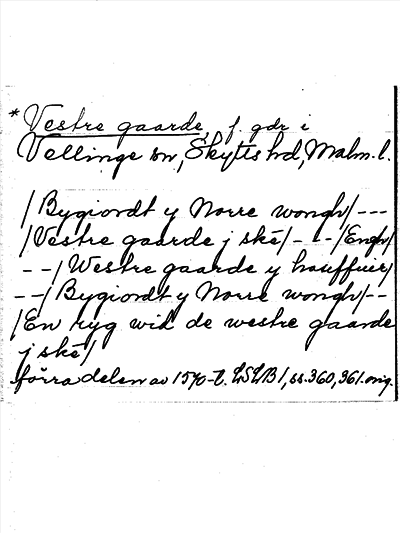 * Vestre gaarde, f. gdr i
Vellinge sn, Skytts hd, Malm. l.
/Bygiordt y Norre wongh/---
/Vestre gaarde j skē/---/Engh/
--/Westre gaarde y hauffuer/
--/Bygiordt y Norre wongh/--
/En ryg wid de westre gaarde
j skē/
förra delen av 1570-t. LSLB 1, ss. 360, 361. orig.